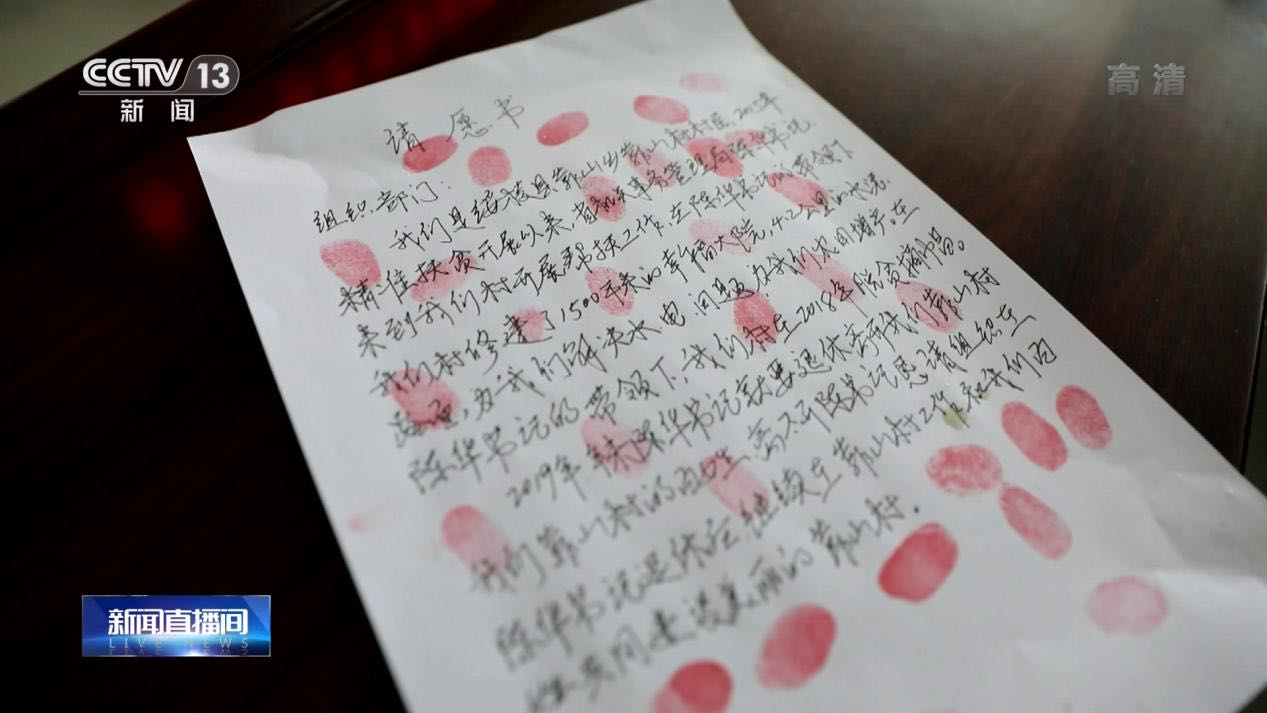 CCTV 13
新闻
高清
请愿书
组织部门:
我们是绥棱县靠山乡靠山村村民,2015年
精准扶贫开展以来,省机关事务管理局陈华书记
来到我们村开展帮扶工作,在陈华书记的带领下
我们村修建了1500平米的幸福大院,4.2公里的水泥
路面,为我们解决水电问题,为我们农田增产在
陈华书记的带领下,我们村在2018年脱贫摘帽。
2019年末陈华书记就要退休离开我们靠山村
我们靠山村的百姓离不开陈书记恳请组织在
陈华书记退休后继续在靠山村工作和我们百
姓共同建设美丽的靠山村.
新闻直播间
LIVE NEWS